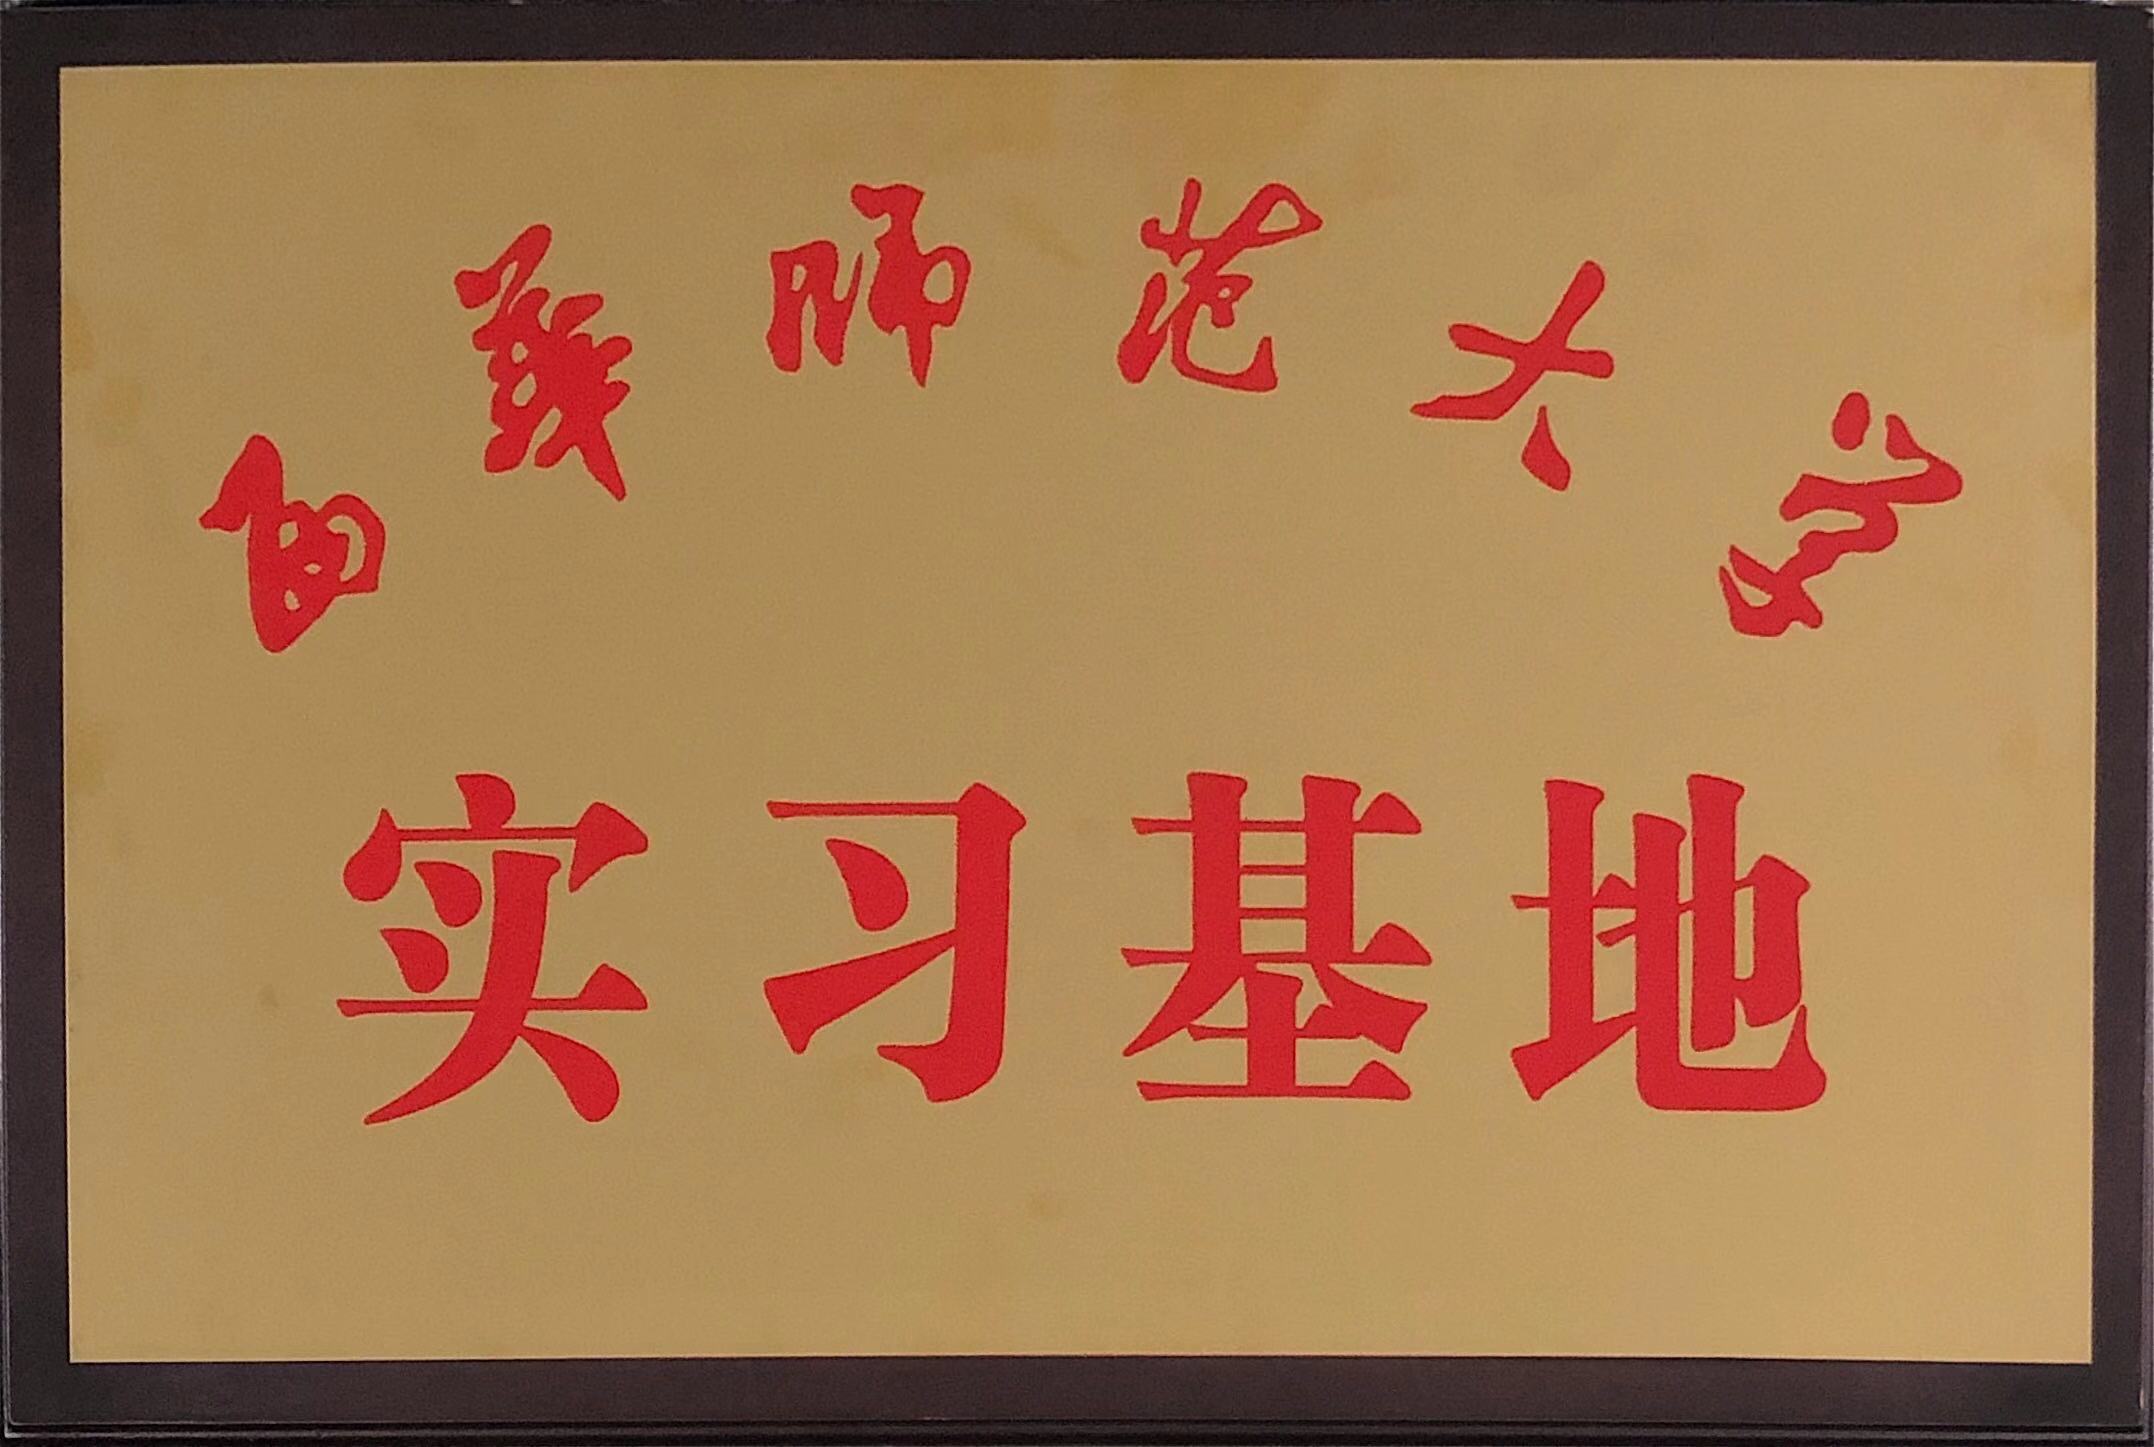 西华师范大学
实习基地